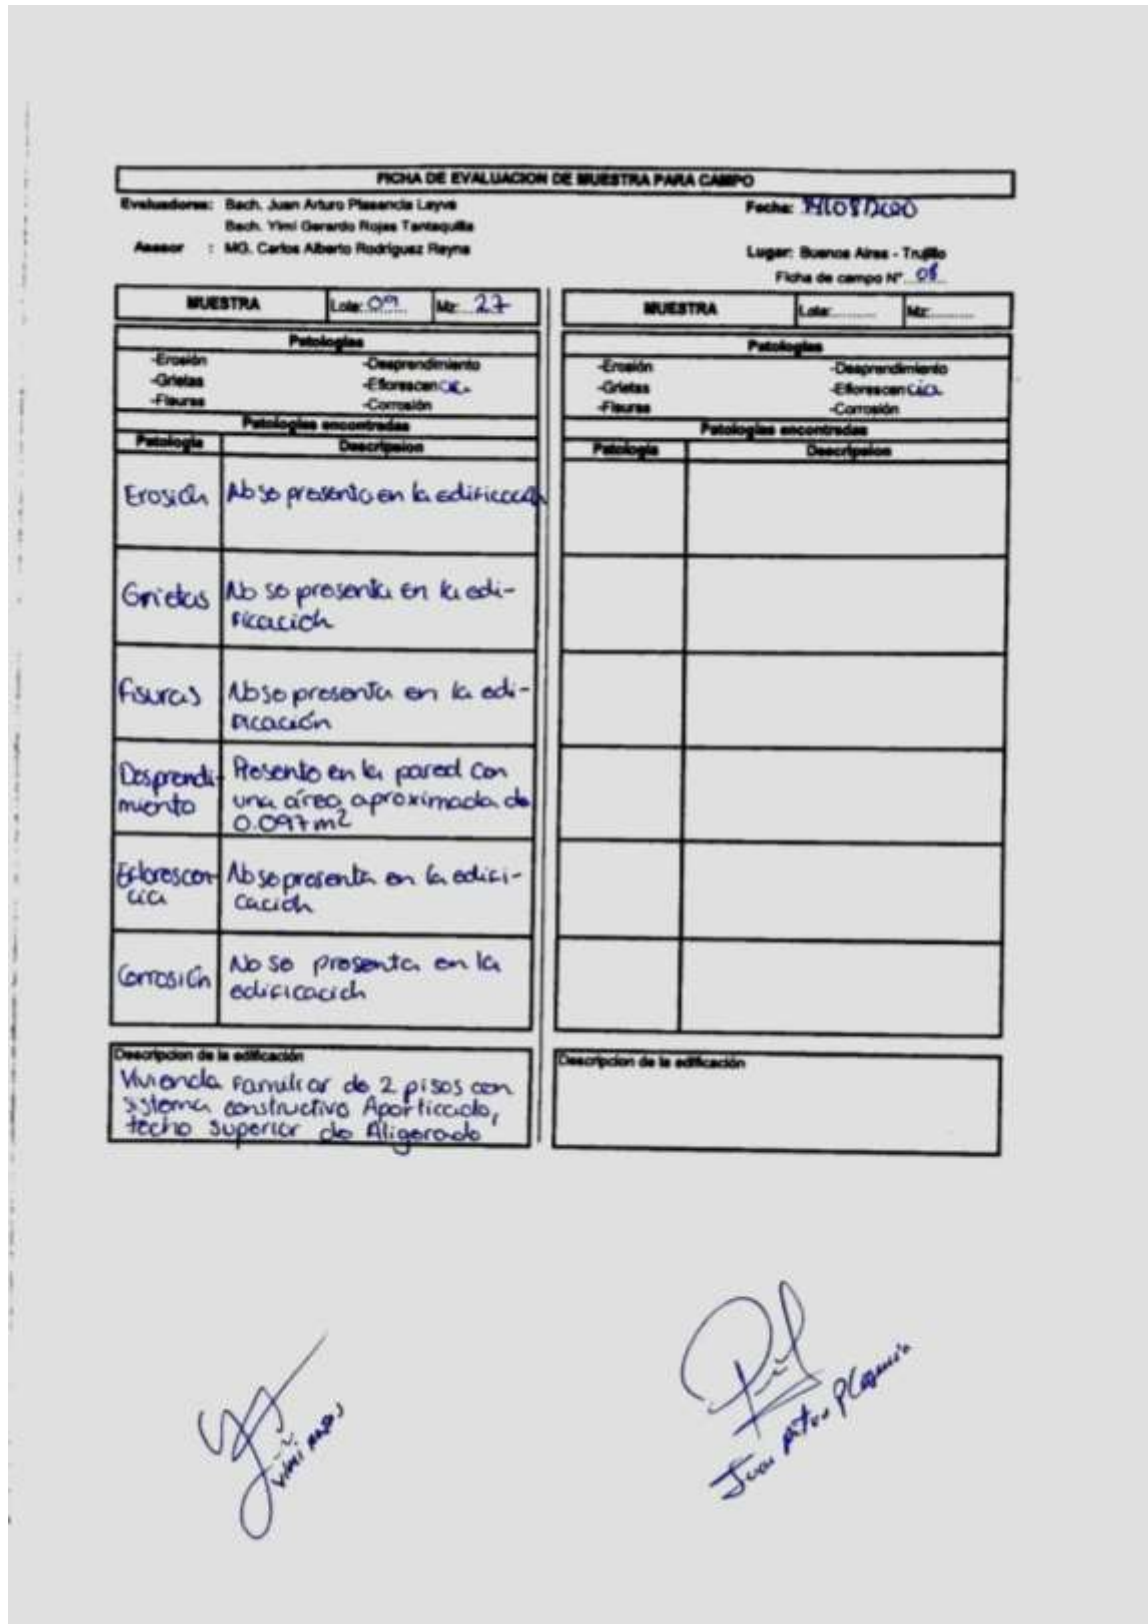 FICHA DE EVALUACION DE MUESTRA PARA CAMPO
Evaluadores: Bach. Juan Arturo Plasencia Leyva
Fecha: /08/2020
Bach. Yimi Gerardo Rojas Tantaquilla
Asesor : MG. Carlos Alberto Rodríguez Reyna
Lugar: Buenos Aires - Trujillo
Ficha de campo N° 08
MUESTRA Lote: 09 Mz: 27
Patologías
-Erosión -Desprendimiento
-Grietas -Eflorescencia
-Fisuras -Corrosión
Patologías encontradas
Patología Descripsion
Erosión No se presenta en la edificación
Grietas No se presenta en la edi-
ficación
Fisuras No se presenta en la edi-
ficación
Desprendi- Presento en la pared con
miento una área aproximada de
0.097 m2
Eflorescen- No se presenta en la edifi-
cia cación
Corrosión No se presenta en la
edificación
Descripcion de la edificación
Vivienda Familiar de 2 pisos con
sistema constructivo Aporticado,
techo superior de Aligerado
MUESTRA Lote: Mz:
Patologías
-Erosión -Desprendimiento
-Grietas -Eflorescencia
-Fisuras -Corrosión
Patologías encontradas
Patología Descripsion
Descripcion de la edificación
Yimi Rojas
Juan Arturo Plasencia